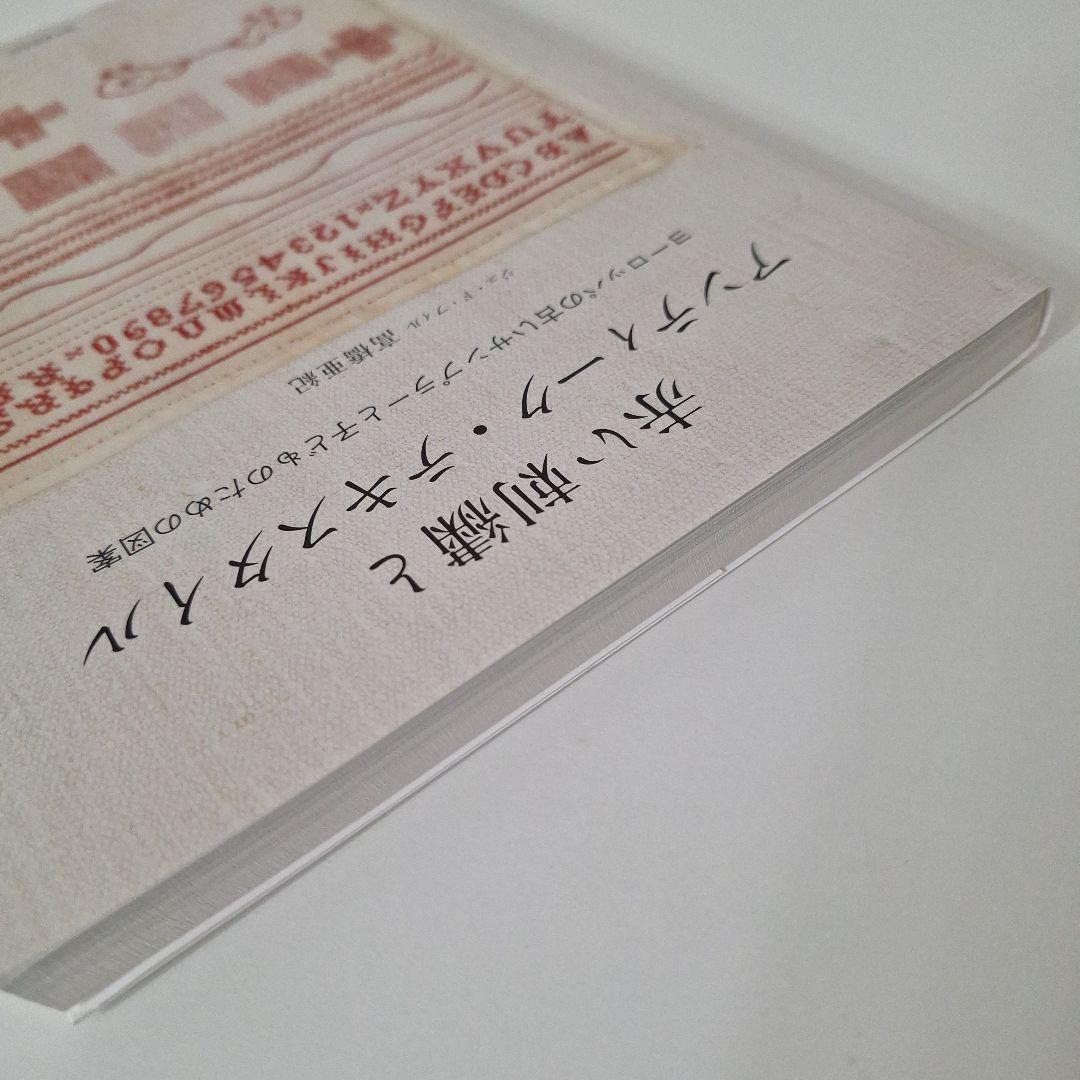 赤い刺繍と
アンティーク・テキスタイル
ヨーロッパの古いサンプラーと子どものための図案
ジュ・ド・フィル 高橋亜紀
ABCDEFGHIJKLMNOPQR
TUVXYZ 1234567890